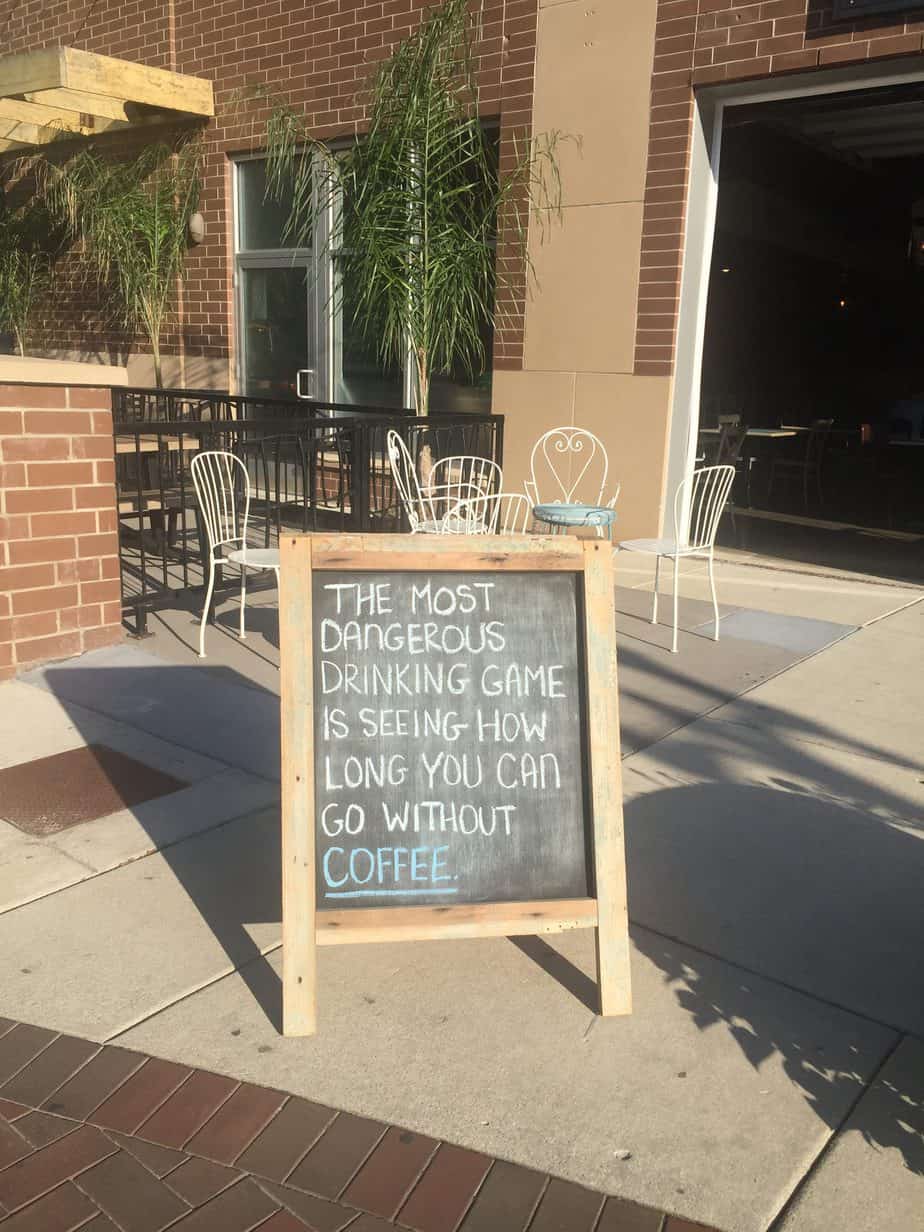 THE MOST
DANGEROUS
DRINKING GAME
IS SEEING HOW
LONG YOU CAN
GO WITHOUT
COFFEE.